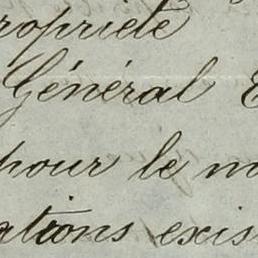 ropriété
Général E
pour le m
ations exis